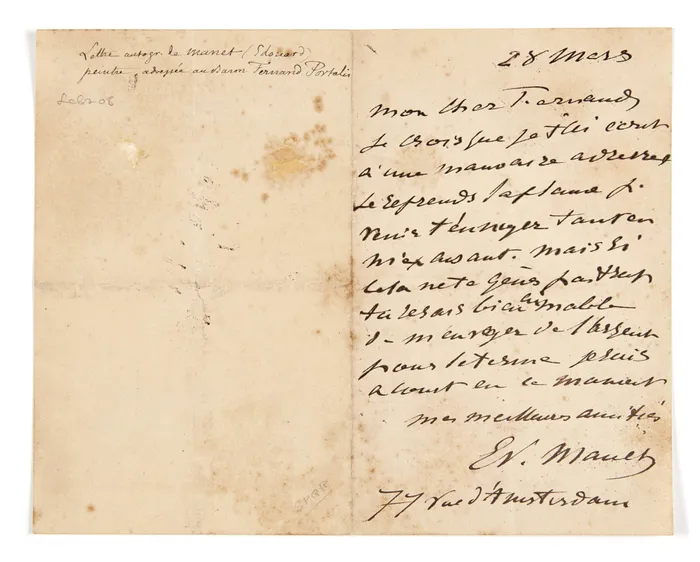 Lettre autogr. de Manet (Edouard)
peintre, adressée au Baron Fernand Portalis
28 Mars
mon cher Fernand
Je crois que je t'ai écrit
à une mauvaise adresse
Je reprends la plume p.
venir t'ennuyer tout en
m'excusant. mais si
cela ne te gêne pas trop
tu serais bien aimable
de m'envoyer de l'argent
pour le terme je suis
a court en ce moment
mes meilleurs amitiés
Ed. Manet
77 rue d'Amsterdam